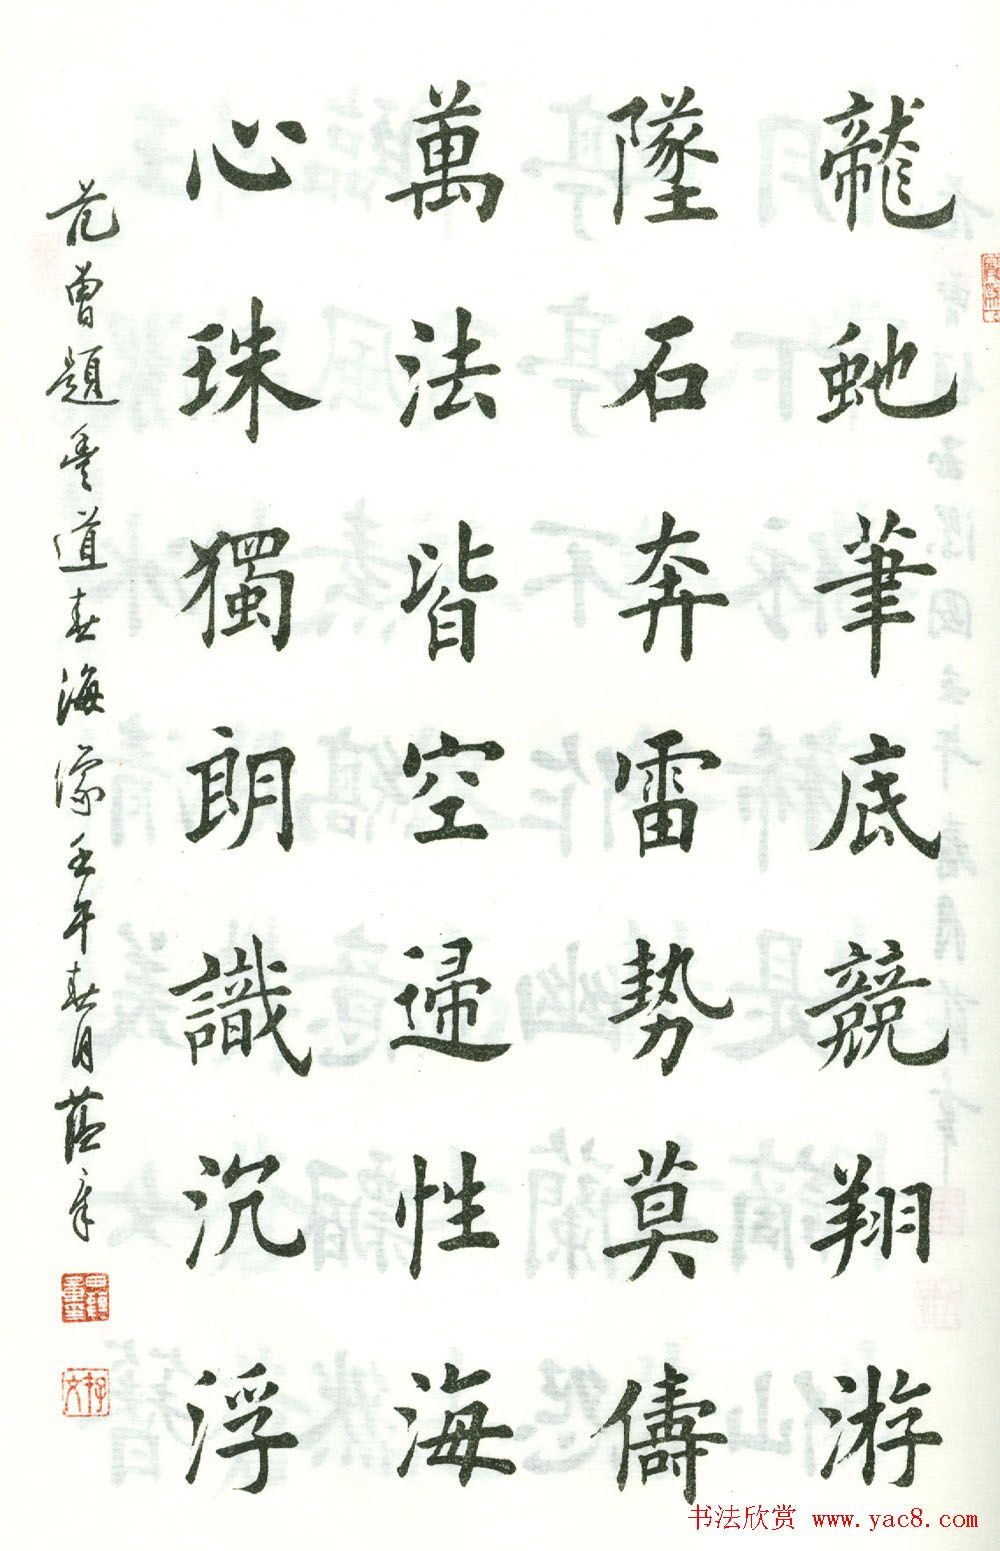 龍虵筆底競翔游
墜石奔雷勢莫儔
萬法皆空歸性海
心珠獨朗識沉浮
范曾題道海壬午春月蘊章
书法欣赏 www.yac8.com